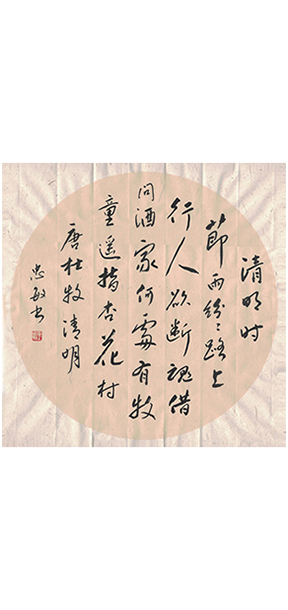 清明时
節雨紛々路上
行人欲断魂借
问酒家何處有牧
童遥指杏花村
唐杜牧清明
忠敏书